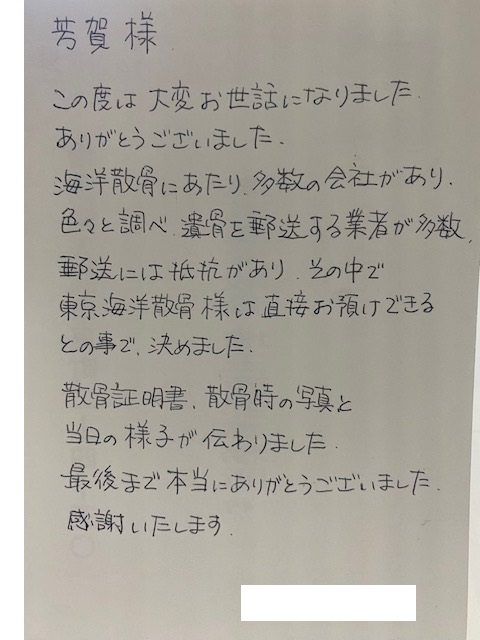 芳賀 様
この度は 大変お世話になりました.
ありがとうございました.
海洋散骨にあたり、多数の会社があり、
色々と調べ 遺骨を郵送する業者が多数、
郵送には抵抗があり、その中で
東京海洋散骨 様は直接お預けできる
との事で、決めました.
散骨証明書、散骨時の写真と
当日の様子が伝わりました.
最後まで本当にありがとうございました.
感謝いたします.